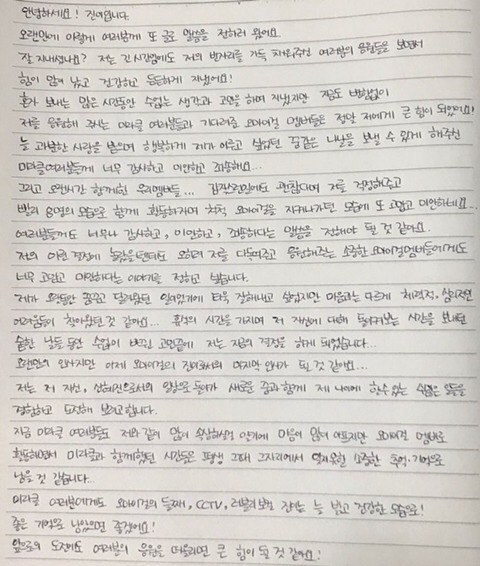 안녕하세요! 진이입니다.
오랜만에 이렇게 여러분께 또 글로 말씀을 전하러 왔어요.
잘 지내셨나요? 저는 긴 시간임에도 저의 빈자리를 가득 채워주신 여러분의 응원들을 보면서
힘이 많이 났고 건강하고 든든하게 지냈어요!
혼자 보내는 많은 시간동안 수없는 생각과 고민을 하며 지냈지만 지금도 변함없이
저를 응원해 주시는 미라클 여러분들과 기다려준 오마이걸 멤버들은 정말 저에게 큰 힘이 되었어요!
늘 과분한 사랑을 받으며 행복하게 제가 이루고 싶었던 꿈같은 나날을 보낼 수 있게 해주신
미라클여러분들께 너무 감사하고 미안하고 죄송해요...
그리고 오랜시간 함께한 우리멤버들... 갑작스런일에도 괜찮다며 저를 걱정해주고
밤의 8명의 모습으로 함께 활동하자며 척척 오마이걸을 지켜나가던 모습에 또 고맙고 미안하네요...
여러분들께도 너무나 감사하고, 미안하고, 죄송하다는 말씀을 전해야 될 것 같아요.
저의 이런 결정에 놀랐을텐데도 오히려 저를 다독여주고 응원해주는 소중한 오마이걸멤버들에게도
너무 고맙고 미안하다는 이야기를 전하고 싶습니다.
제가 오랫동안 꿈꾸고 달려왔던 일이었기에 더욱 잘해내고 싶었지만 마음과는 다르게 체력적, 심리적인
어려움들이 찾아왔던 것 같아요... 휴식의 시간을 가지며 저 자신에 대해 돌이켜보는 시간을 보내던
숱한 날들 동안 수없이 바뀌던 고민끝에 저는 지금의 결정을 하게 되었습니다...
오랜만의 인사지만 이제 오마이걸의 진이로서의 마지막 인사가 될 것 같아요...
저는 저 자신, 신혜진으로서의 일상으로 돌아가 새로운 꿈과 함께 제 나이에 할 수 있는 수많은 일들을
경험하고 도전해 보려고합니다.
지금 미라클 여러분들도 저와 같이 많이 속상하실걸 알기에 마음이 많이 아프지만 오마이걸 멤버로
활동하면서 미라클과 함께했던 시간들은 평생 그때 그자리에서 잊지못할 소중한 추억·기억으로
남을 것 같습니다..
미라클 여러분에게도 오마이걸의 둘째, CCTV, 러블리보컬 진이는 늘 밝고 건강한 모습으로!
좋은 기억으로 남았으면 좋겠어요!
앞으로의 도전에도 여러분의 응원을 떠올리면 큰 힘이 될 것 같아요!